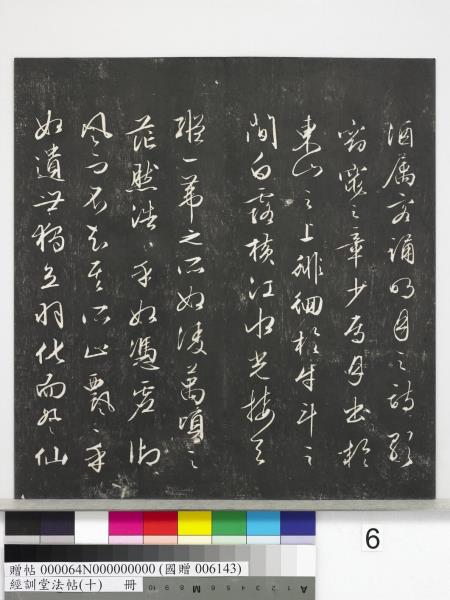 酒属客誦明月之詩歌
窈窕之章少焉月出於
東山之上徘徊於斗牛之
間白露横江水光接天
縱一葦之所如凌萬頃之
茫然浩〻乎如馮虚御
風而不知其所止飄〻乎
如遺世獨立羽化而登仙
6
贈帖 000064N000000000 (國贈 006143)
經訓堂法帖(十) 冊